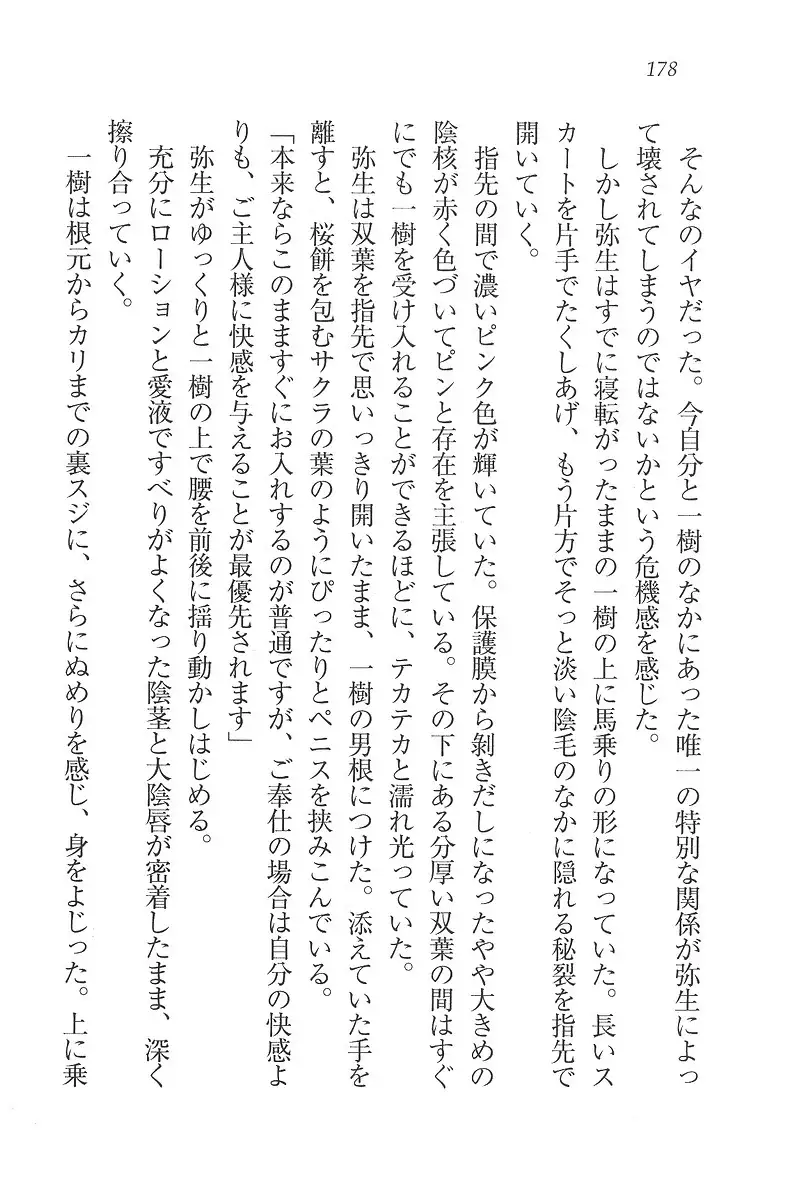 178
そんなのイヤだった。今自分と一樹のなかにあった唯一の特別な関係が弥生によっ
て壊されてしまうのではないかという危機感を感じた。
しかし弥生はすでに寝転がったままの一樹の上に馬乗りの形になっていた。長いス
カートを片手でたくしあげ、もう片方でそっと淡い陰毛のなかに隠れる秘裂を指先で
開いていく。
指先の間で濃いピンク色が輝いていた。保護膜から剝きだしになったやや大きめの
陰核が赤く色づいてピンと存在を主張している。その下にある分厚い双葉の間はすぐ
にでも一樹を受け入れることができるほどに、テカテカと濡れ光っていた。
弥生は双葉を指先で思いっきり開いたまま、一樹の男根につけた。添えていた手を
離すと、桜餅を包むサクラの葉のようにぴったりとペニスを挟みこんでいる。
「本来ならこのまますぐにお入れするのが普通ですが、ご奉仕の場合は自分の快感よ
りも、ご主人様に快感を与えることが最優先されます」
弥生がゆっくりと一樹の上で腰を前後に揺り動かしはじめる。
充分にローションと愛液ですべりがよくなった陰茎と大陰唇が密着したまま、深く
擦り合っていく。
一樹は根元からカリまでの裏スジに、さらにぬめりを感じ、身をよじった。上に乗